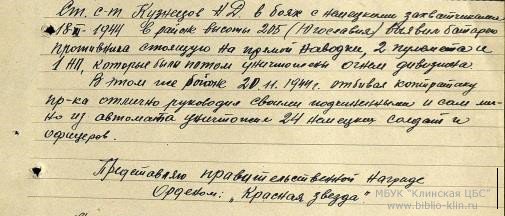 Ст. с-т Кузнецов Н.Д. в боях с немецкими захватчиками
18 II - 1944 в районе высоты 205 (Югославия) выявил батарею
противника стоящую на прямой наводки, 2 пулемета и
1 НП, которые были потом уничтожены огнем дивизиона.
В том же районе 20.11.1944г. отбивая контратаку
пр-ка отлично руководил своими подчиненными и сам лич-
но из автомата уничтожил 24 немецких солдат и
офицеров.
Представляю правительственной награде
Орденом: "Красная звезда"
МБУК "Клинская ЦБС"
www.biblio-klin.ru